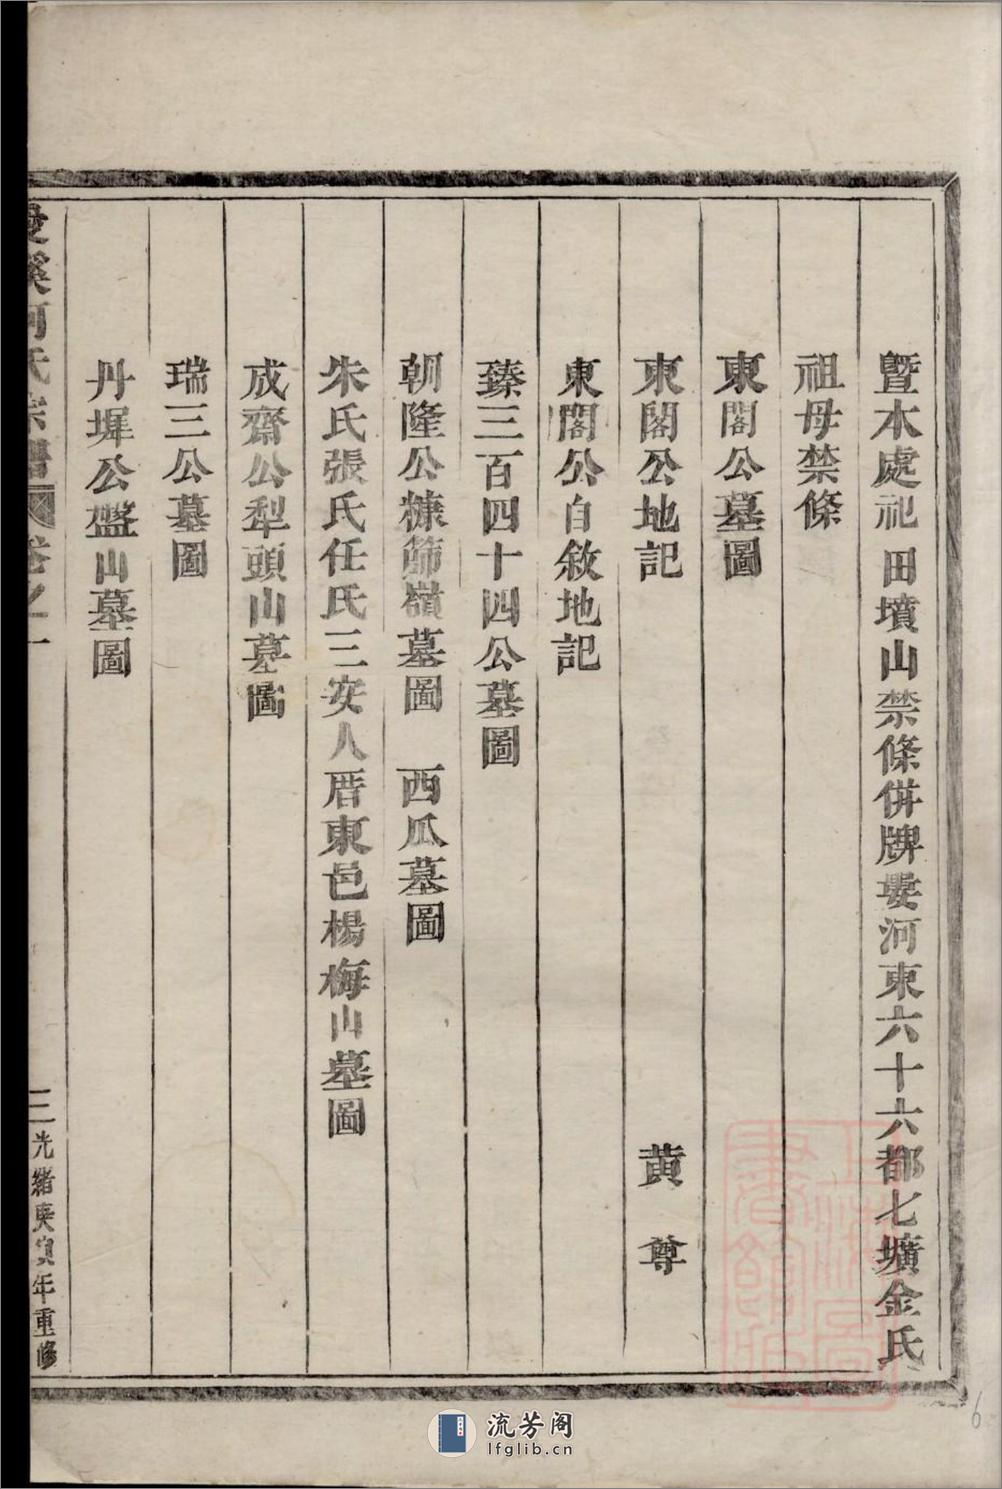 暨本處祀田墳山禁條併牌婁河東六十六都七壙金氏
祖母禁條
東閣公墓圖
東閣公地記 黃尊
東閣公自敘地記
臻三百四十四公墓圖
朝隆公糠篩嶺墓圖 西瓜墓圖
朱氏張氏任氏三安人厝東邑楊梅山墓圖
成齋公犁頭山墓圖
瑞三公墓圖
丹墀公盤山墓圖
溪何氏宗譜 卷之一 三 光緒庚寅年重修
上海圖書館藏
流芳阁
lfglib.cn
6